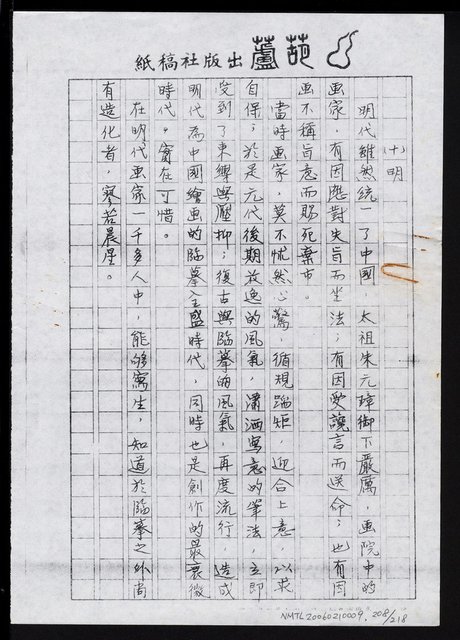 紙稿社版出蘆葫
(十)明
明代雖然統一了中國，太祖朱元璋御下嚴厲，画院中的
画家，有因應對失旨而坐法；有因受讒言而送命；也有因
画不稱旨意而賜死棄市。
當時画家，莫不怵然心驚，循規蹈矩，迎合上意，以求
自保；於是元代後期放逸的風氣，瀟洒寫意的筆法，立即
受到了束縛與壓抑；復古與臨摹的風氣，再度流行，造成
明代為中國繪画的臨摹全盛時代，同時也是創作的最衰微
時代。實在可惜。
在明代画家一千多人中，能够寫生，知道於臨摹之外尚
有造化者，寥若晨星。
NMTL20060210009, 208/218